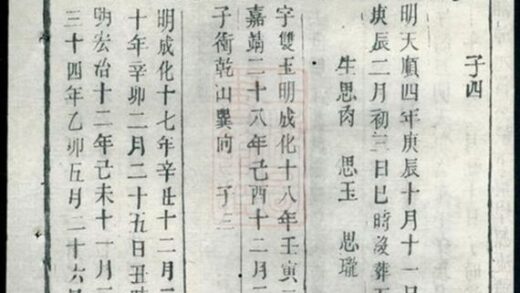 子四
明天順四年庚辰十月十一日
庚辰二月初三日巳時没葬
生思 思玉 思瓏
字雙玉明成化十八年壬寅
嘉靖二十八年己酉十二月
子衝乾山巽向 子三
明成化十七年辛丑十二月
十年辛卯二月二十五日丑時
明宏治十二年己未十一月
三十四年乙卯五月二十六